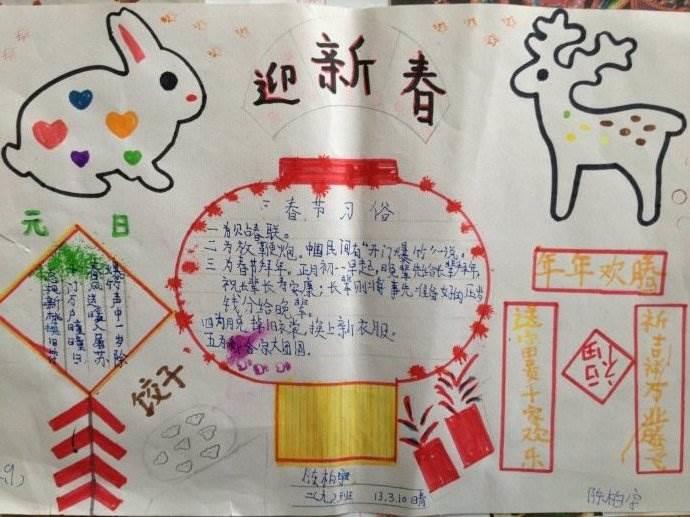 迎新春
元日
爆竹声中一岁除
春风送暖入屠苏
千门万户曈曈日
总把新桃换旧符
饺子
春节习俗
一为贴春联。
二为放鞭炮。中国民间有"开门爆竹"一说。
三为春节拜年。正月初一早起,晚辈先给长辈拜年,
祝长辈长寿安康;长辈则将事先准备好的压岁
钱分给晚辈。
四为脱掉旧衣裳,换上新衣服。
五为各家大团圆。
二(九)班 13.3.10 晴
年年欢腾
福
送富贵千家欢乐
陈柏宇